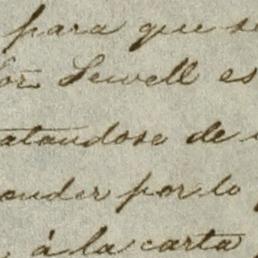 para que se
or. Sewell es
atandose de
onder por lo
á la carta